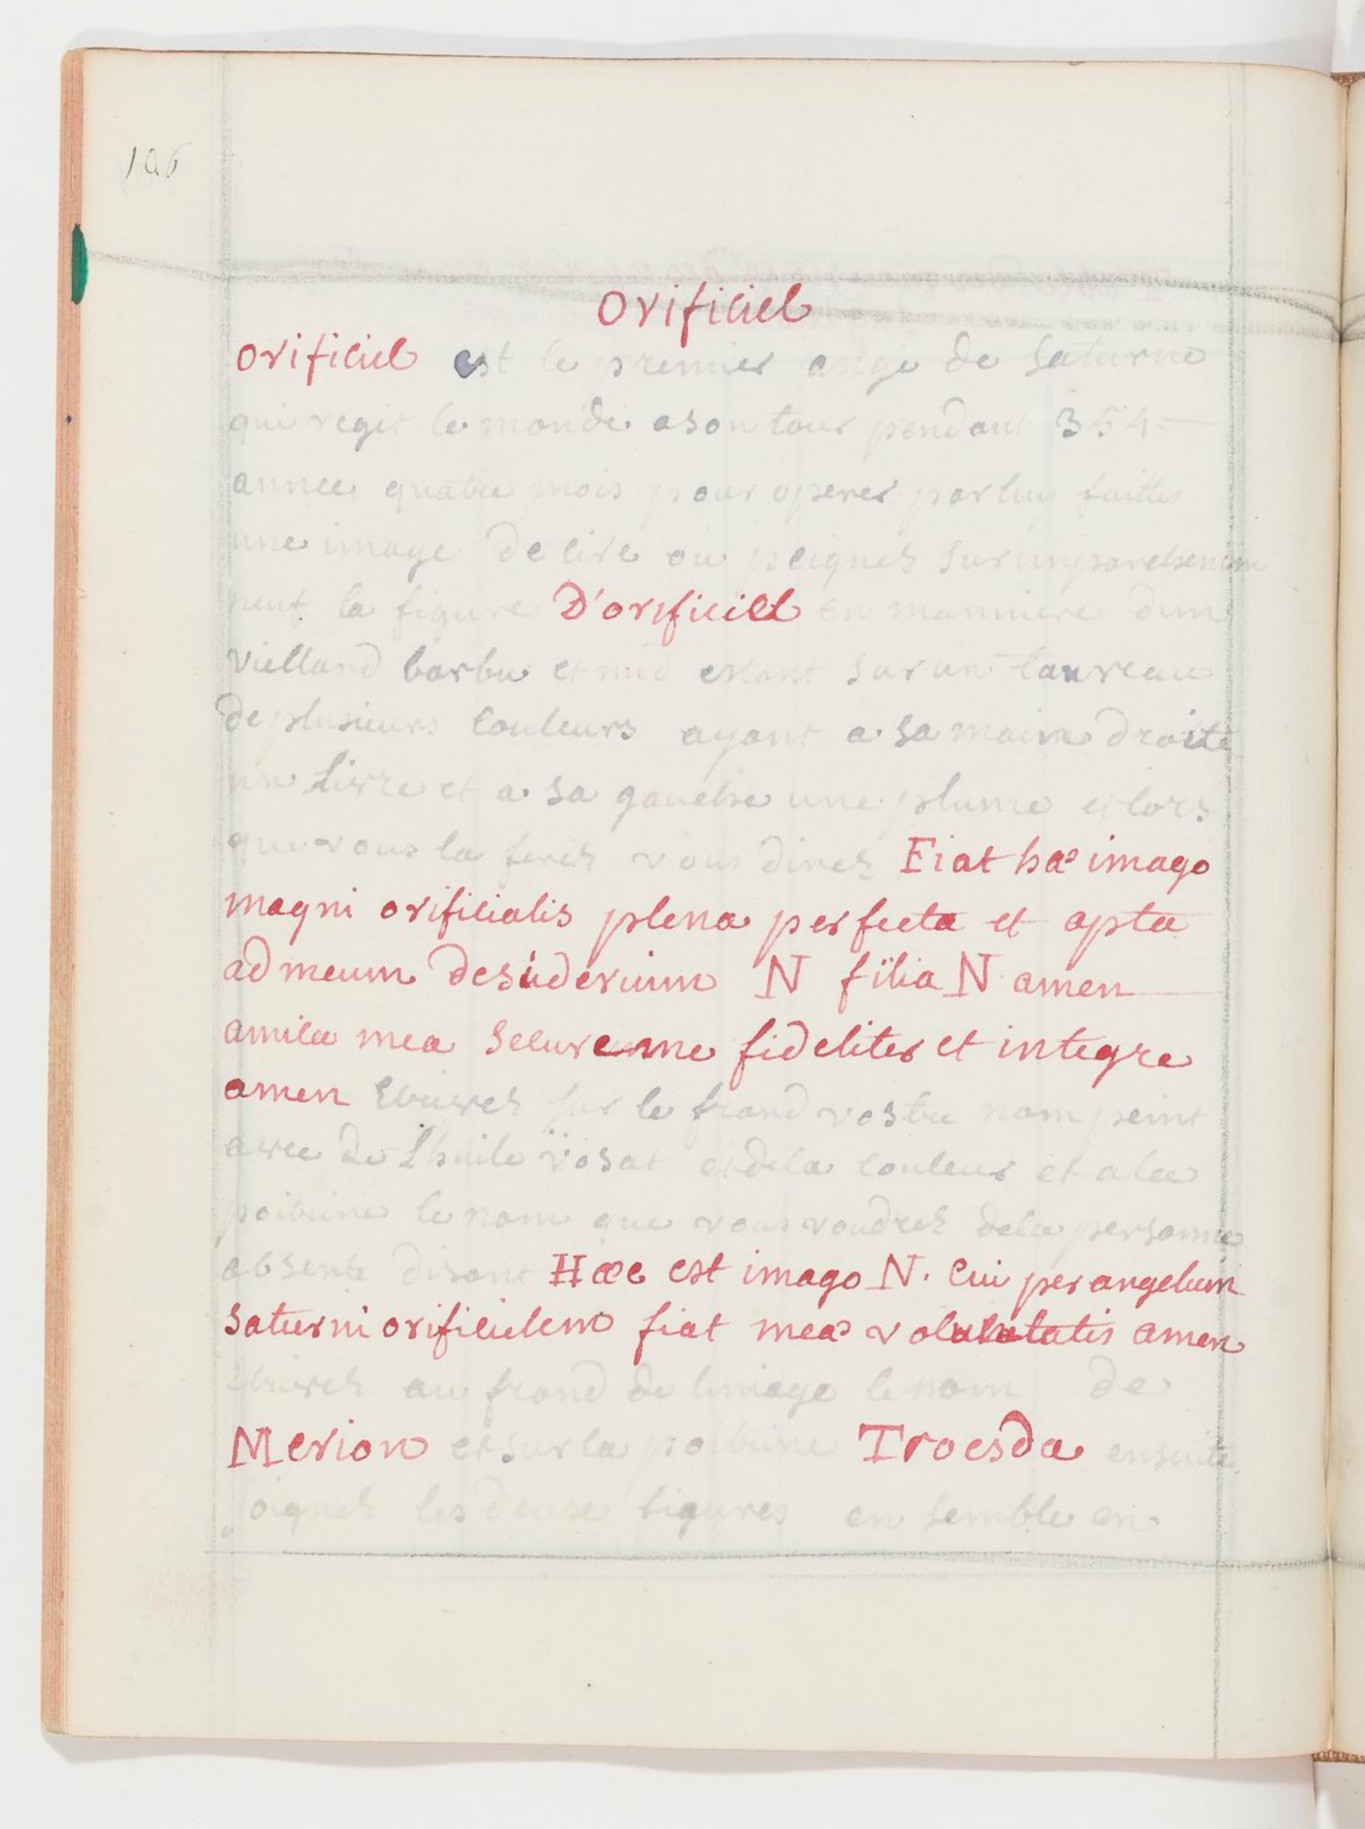 106
Orificiel
orificiel est le premier ange de Saturne
qui regit le monde a son tour pendant 354
annee quatre mois pour operer par luy faittes
une image de cire ou peignez sur un parchemin
neuf la figure D'orificiel en manniere d'un
viellard barbu et nud estant sur un taureau
de plusieurs couleurs ayant a sa main droite
un livre et a sa gauche une plume et lors
que vous la ferez vous direz Fiat hæc imago
magni orificialis plena perfecta et apta
ad meum desiderium N filia N amen
amica mea secure me fideliter et integre
amen Ecrivez sur le frond vostre nom peint
avec de l'huile rosat et de la couleur et a la
poitrine le nom que vous voudrez de la personne
absente disant Hæc est imago N. cui per angelum
saturni orificielem fiat mea voluntatis amen
Ecrivez au frond de limage le nom de
Merion et sur la poitrine Troesda ensuite
joignez les deux figures en semble en